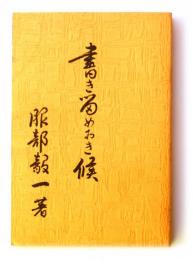 書き留めおき候
服部毅一著